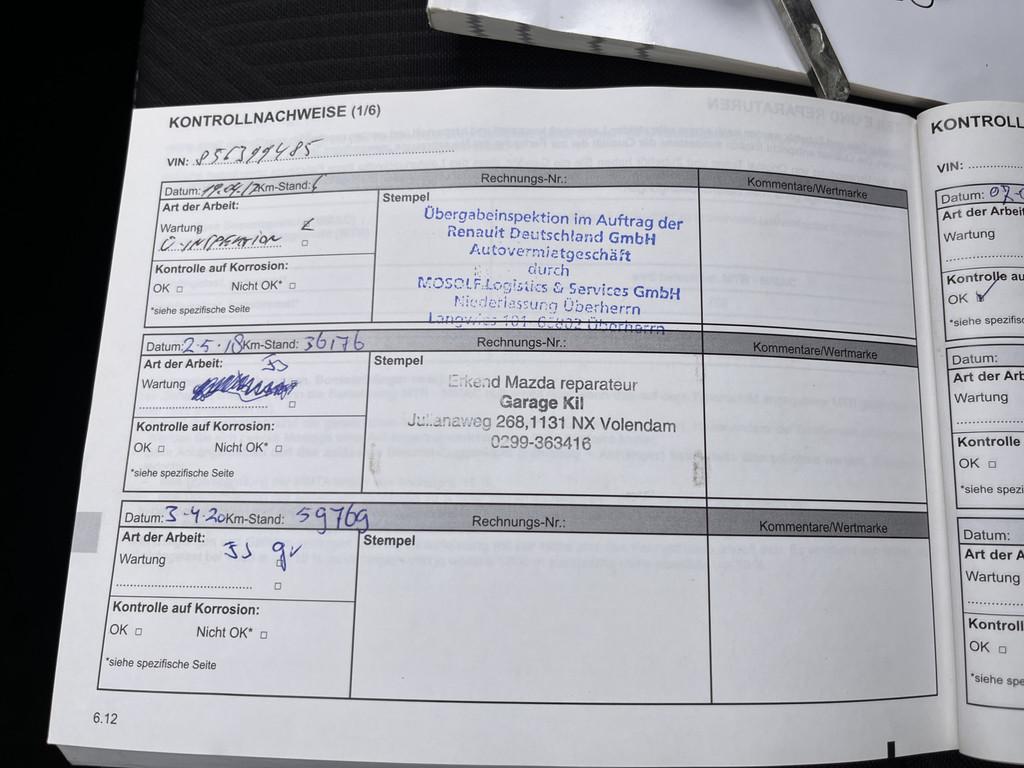 KONTROLLNACHWEISE (1/6)
VIN: 856399485
Datum: 19.04.17 Km-Stand: 6 Rechnungs-Nr.: Kommentare/Wertmarke
Art der Arbeit: Stempel
Wartung
Ü-INSPEKTION
Übergabeinspektion im Auftrag der
Renault Deutschland GmbH
Autovermietgeschäft
durch
MOSOLF Logistics & Services GmbH
Niederlassung Überherrn
Langwies 101 66802 Überherrn
Kontrolle auf Korrosion:
OK □ Nicht OK* □
*siehe spezifische Seite
Datum: 2-5-18 Km-Stand: 36176 Rechnungs-Nr.: Kommentare/Wertmarke
Art der Arbeit: JJ Stempel
Wartung
Erkend Mazda reparateur
Garage Kil
Julianaweg 268,1131 NX Volendam
0299-363416
Kontrolle auf Korrosion:
OK □ Nicht OK* □
*siehe spezifische Seite
Datum: 3-4-20 Km-Stand: 59769 Rechnungs-Nr.: Kommentare/Wertmarke
Art der Arbeit: Stempel
JJ gv
Wartung
Kontrolle auf Korrosion:
OK □ Nicht OK* □
*siehe spezifische Seite
6.12
KONTROLL
VIN:
Datum: 07
Art der Arbei
Wartung
Kontrolle au
OK
*siehe spezifisc
Datum:
Art der Arb
Wartung
Kontrolle
OK □
*siehe spezi
Datum:
Art der A
Wartung
Kontroll
OK □
*siehe spe